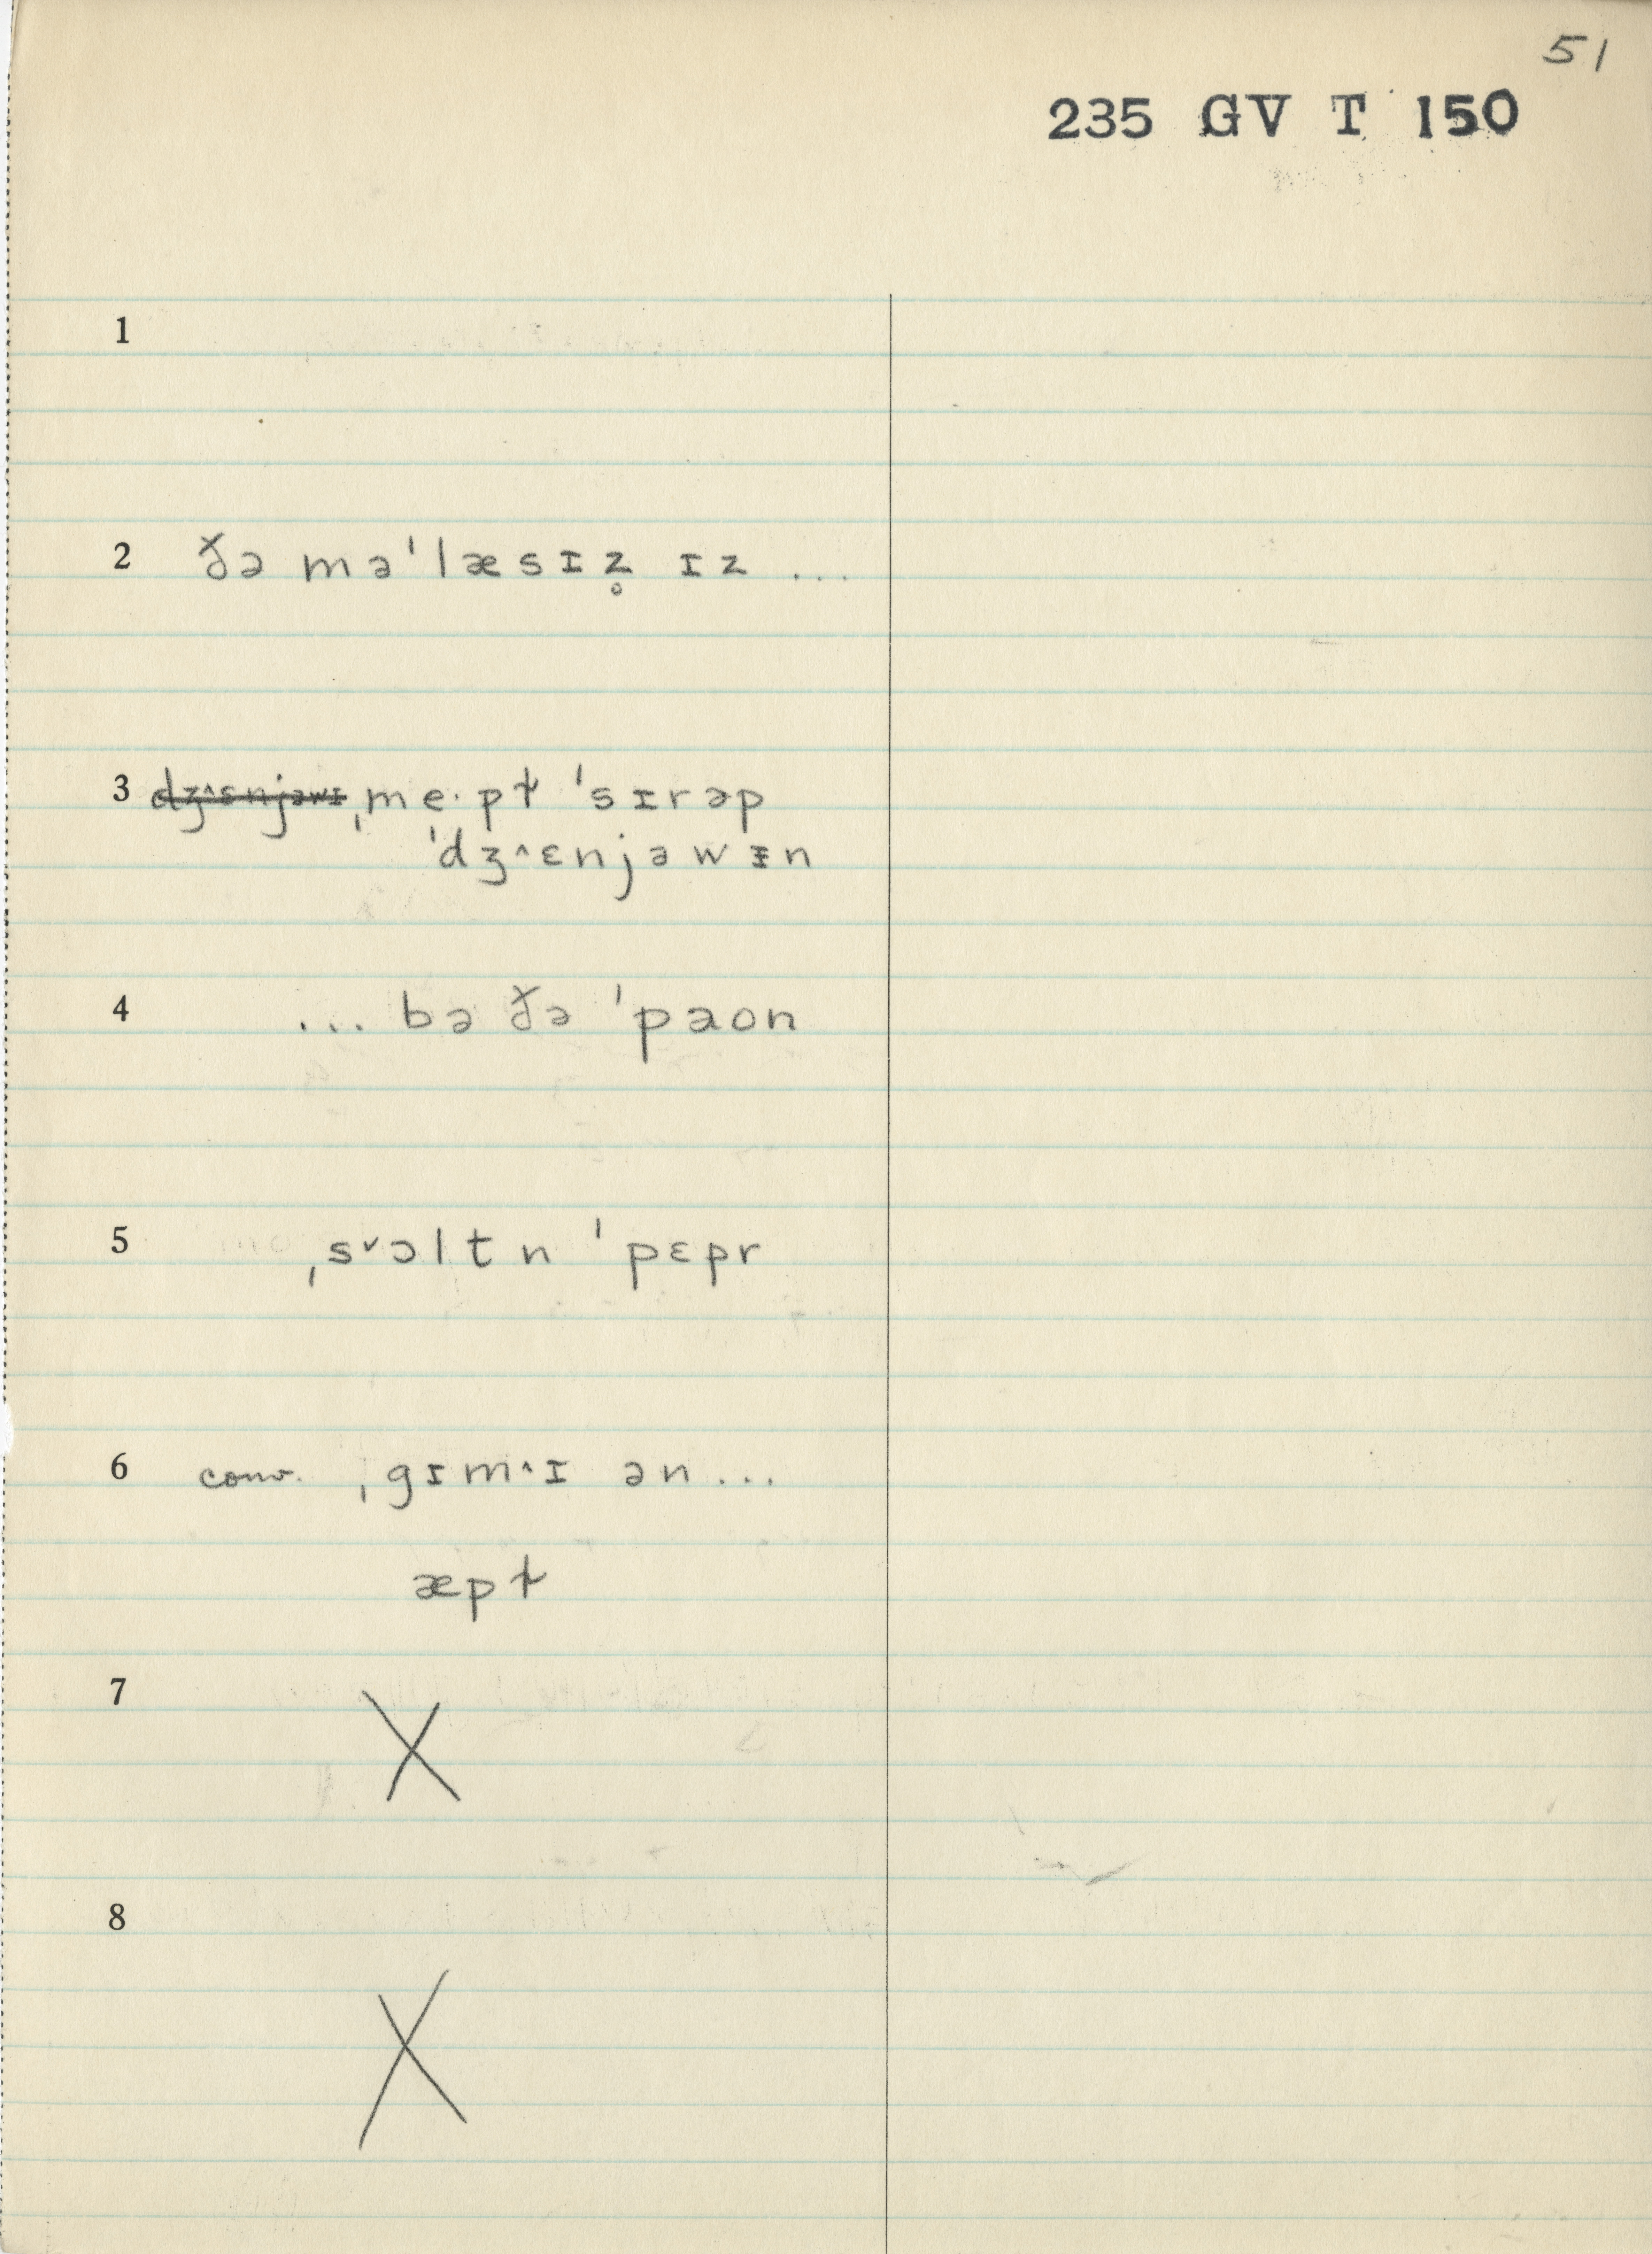 51
235 GV T 150
1
2 ðə mə'læsɪz̥ ɪz ...
3 ˌme·pɫ 'sɪrəp
'dʒ˄ɛnjəwᵻn
4 ... bə ðə 'paon
5 ˌs˅ɔltn 'pɛpr
6 conv. ˌgɪm˄ɪ ən ...
æpɫ
7 X
8 X